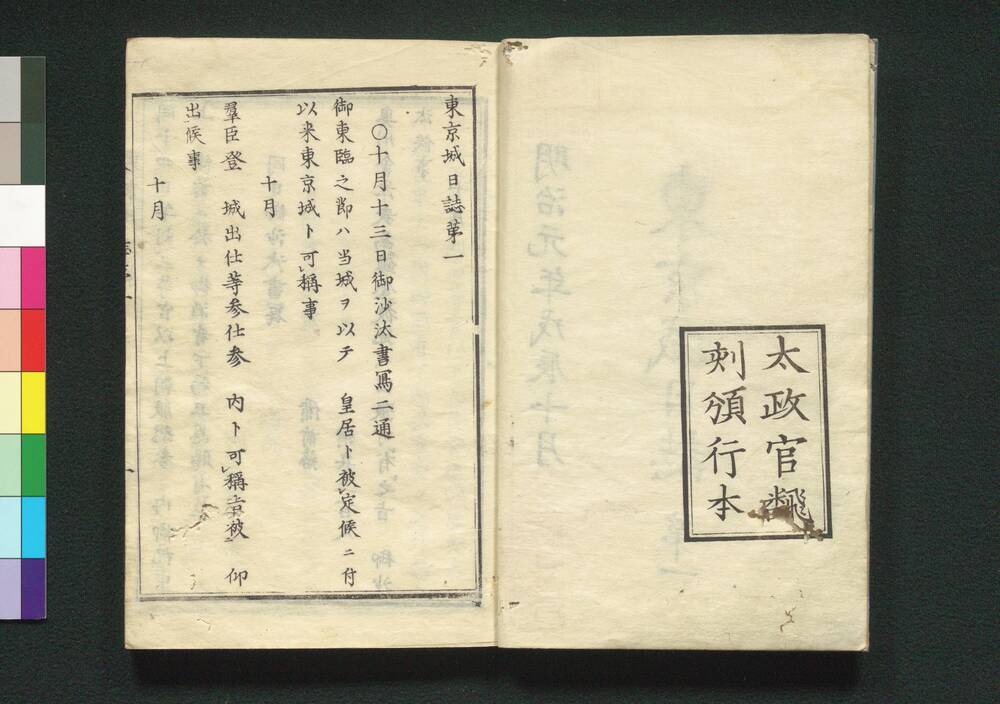 太政官
刻頒行本
東京城日誌第一
〇十月十三日御沙汰書寫二通
御東臨之節ハ当城ヲ以テ 皇居ト被定候ニ付
以来東京城ト可稱事
十月
羣臣登 城出仕等参仕参 内ト可稱旨被 仰
出候事
十月